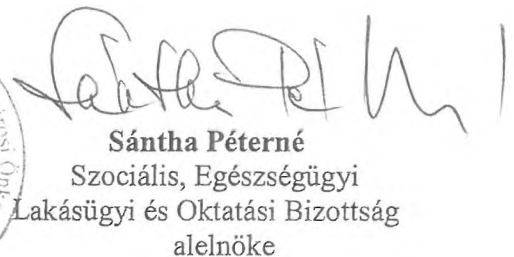 Sántha Péterné
Szociális, Egészségügyi
Lakásügyi és Oktatási Bizottság
alelnöke